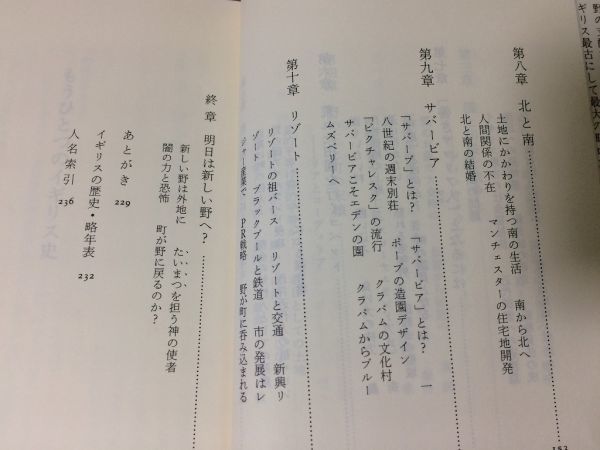 ギリス最古にして最大の
第八章 北と南
土地にかかわりを持つ南の生活 南から北へ
人間関係の不在 マンチェスターの住宅地開発
北と南の結婚
第九章 サバービア
「サバーブ」とは? 「サバービア」とは? 一
八世紀の週末別荘 ポープの造園デザイン
「ピクチャレスク」の流行 クラパムの文化村
サバービアこそエデンの園 クラパムからブルー
ムズベリーへ
第十章 リゾート
リゾートの祖バース リゾートと交通 新興リ
ゾート ブラックプールと鉄道 市の発展はレ
ジャー産業で PR戦略 野が町に呑み込まれる
終章 明日は新しい野へ?
新しい野は外地に たいまつを担う神の使者
闇の力と恐怖 町が野に戻るのか?
あとがき 229
イギリスの歴史・略年表 232
人名索引 236